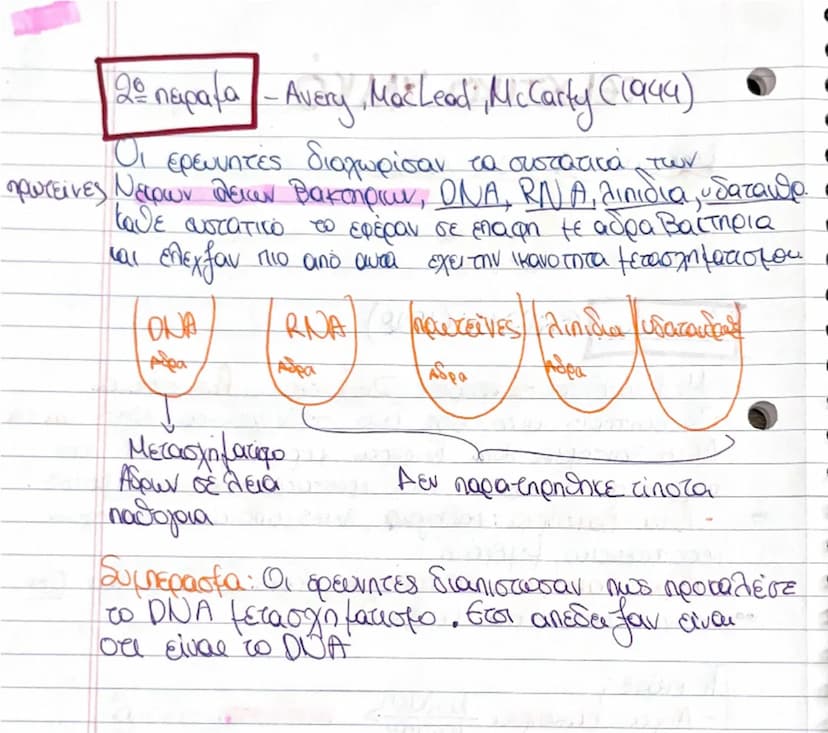 2ο πείραμα - Avery, MacLeod, McCarty (1944)
Οι ερευνητές διαχώρισαν τα συστατικά των
πρωτείνες Νεκρων λειων Βακτηριων, DNA, RNA, λιπιδια, υδατανθρ.
κάθε συστατικό το εφέραν σε επαφη με αδρα Βακτηρια
και ελεγξαν πιο από αυτα έχει την ικανοτητα μετασχηματισμου
DNA RNA πρωτεϊνες λιπιδια υδατανθρ
Αδρα Αδρα Αδρα Αδρα
Μετασχηματισμο
Αδρων σε λεια
παθογονα
Δεν παρατηρηθηκε τιποτα
Συμπερασμα: Οι ερευνητές διαπιστωσαν πως προκαλέσε
το DNA μετασχηματισμο. Ετσι απεδειξαν είναι
οτι είναι το DNA